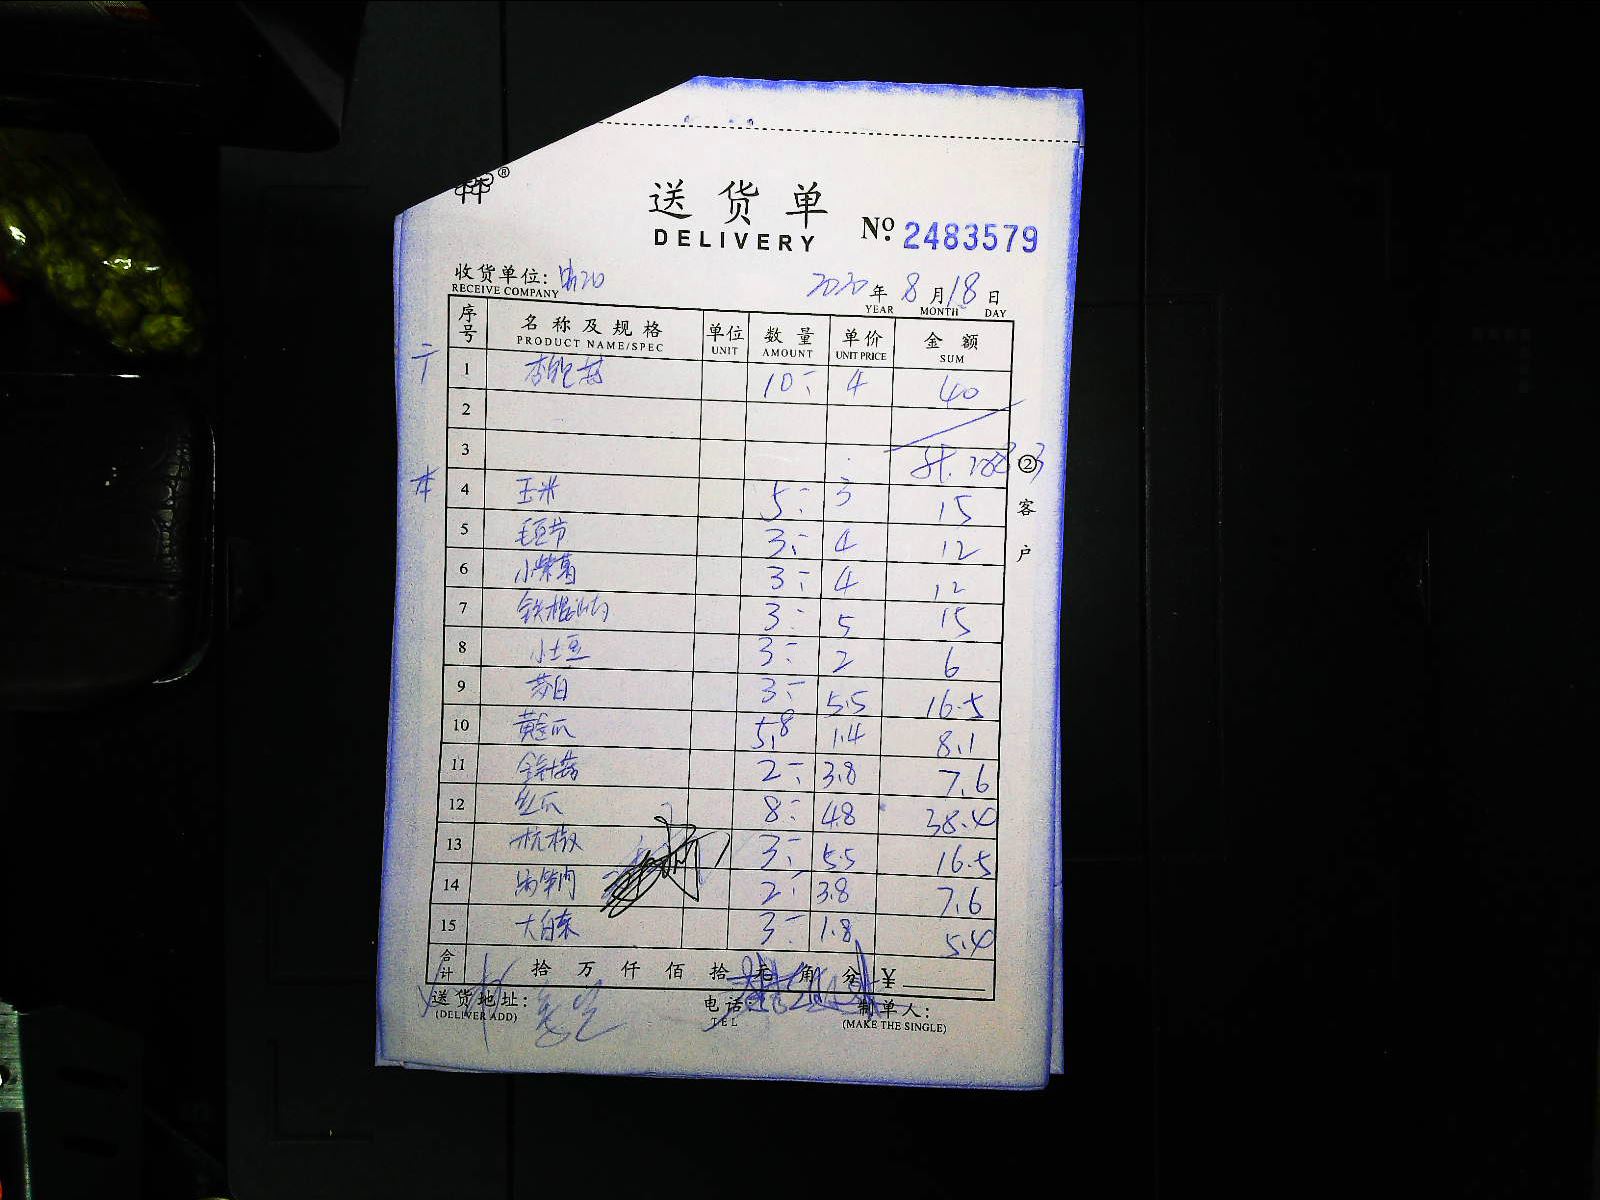 ®
送货单
DELIVERY
№ 2483579
收货单位:
RECEIVE COMPANY
2020 年 8 月 18 日
YEAR MONTH DAY
序号 名称及规格 单位 数量 单价 金额
PRODUCT NAME/SPEC UNIT AMOUNT UNIT PRICE SUM
1 10 4 40
2
3
4 玉米 5 3 15
5 毛豆节 3 4 12
6 3 4 12
7 3 5 15
8 小土豆 3 2 6
9 茭白 3 5.5 16.5
10 5.8 1.4 8.1
11 金针菇 2 3.8 7.6
12 丝瓜 8 4.8 38.4
13 杭椒 3 5.5 16.5
14 2 3.8 7.6
15 大白菜 3 1.8 5.4
②客户
合计 拾 万 仟 佰 拾 元 角 分 ¥
送货地址: 电话: 制单人:
(DELIVER ADD) TEL (MAKE THE SINGLE)